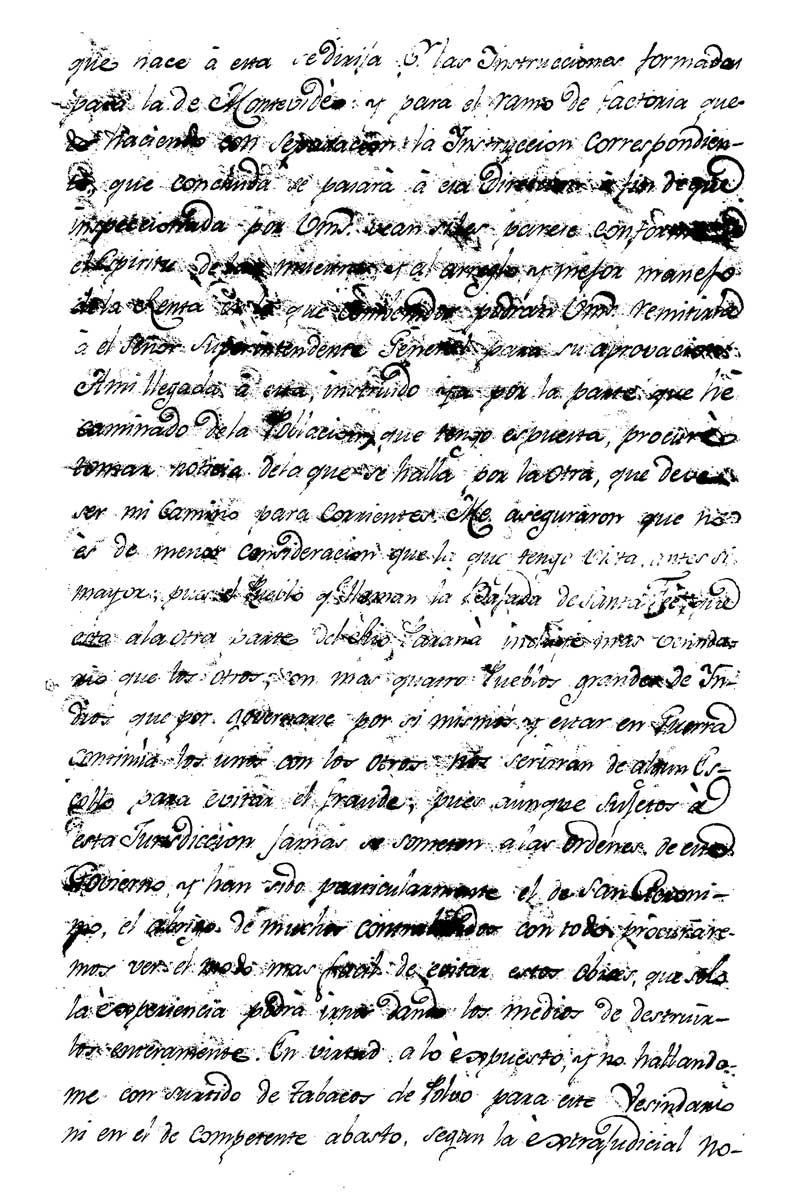 que hace à esta se dirija P.r las Instrucciones formadas
para la de Montevidèo: y para el ramo de factoria que-
do haciendo con separacion la Instruccion Correspondien-
te, que concluida se pasarà à esa Direccion à fin de que
inspeccionada por Vms. vean si les parese conforme
el Espiritu de las nuestras y al arreglo, y mejor manejo
de la Renta que combenidos podràn Vms. remitirla
à el Señor Superintendente General para su aprovacion.
A mi llegada à esta, instruido ya por la parte que hè
caminado de la Poblacion, que tengo espuesta, procurè
tomar noticia de la que se halla por la otra, que deve
ser mi Camino para Corrientes. Me aseguraron que no
ès de menor consideracion que la que tengo vista, antes si
mayor; pues el Pueblo q.e llaman la Bajada de Santa Feè, que
esta a la otra parte del Rio Paranà incluye mas veninda-
rio que los otros; con mas quatro Pueblos grandes de In-
dios que por governarse por si mismos, y estar en Guerra
continùa los unos con los otros nos serviran de algun Es-
collo para evitar el fraude; pues aunque sujetos à
esta Jurisdiccion jamas se someten a las ordenes de este
Govierno, y han sido particularmente el de San Geroni-
mo, el abrigo de muchos contrabandos con todo, procurare-
mos ver el modo mas facil de evitar estos obices, que sola
la èxperiencia podrà irnos dando los medios de destruir-
los enteramente. En virtud a lo èxpuesto, y no hallando-
me con surtido de Tabacos de Polvo para este Vesindario
ni en el de competente abasto, segun la èxtrajudicial no-